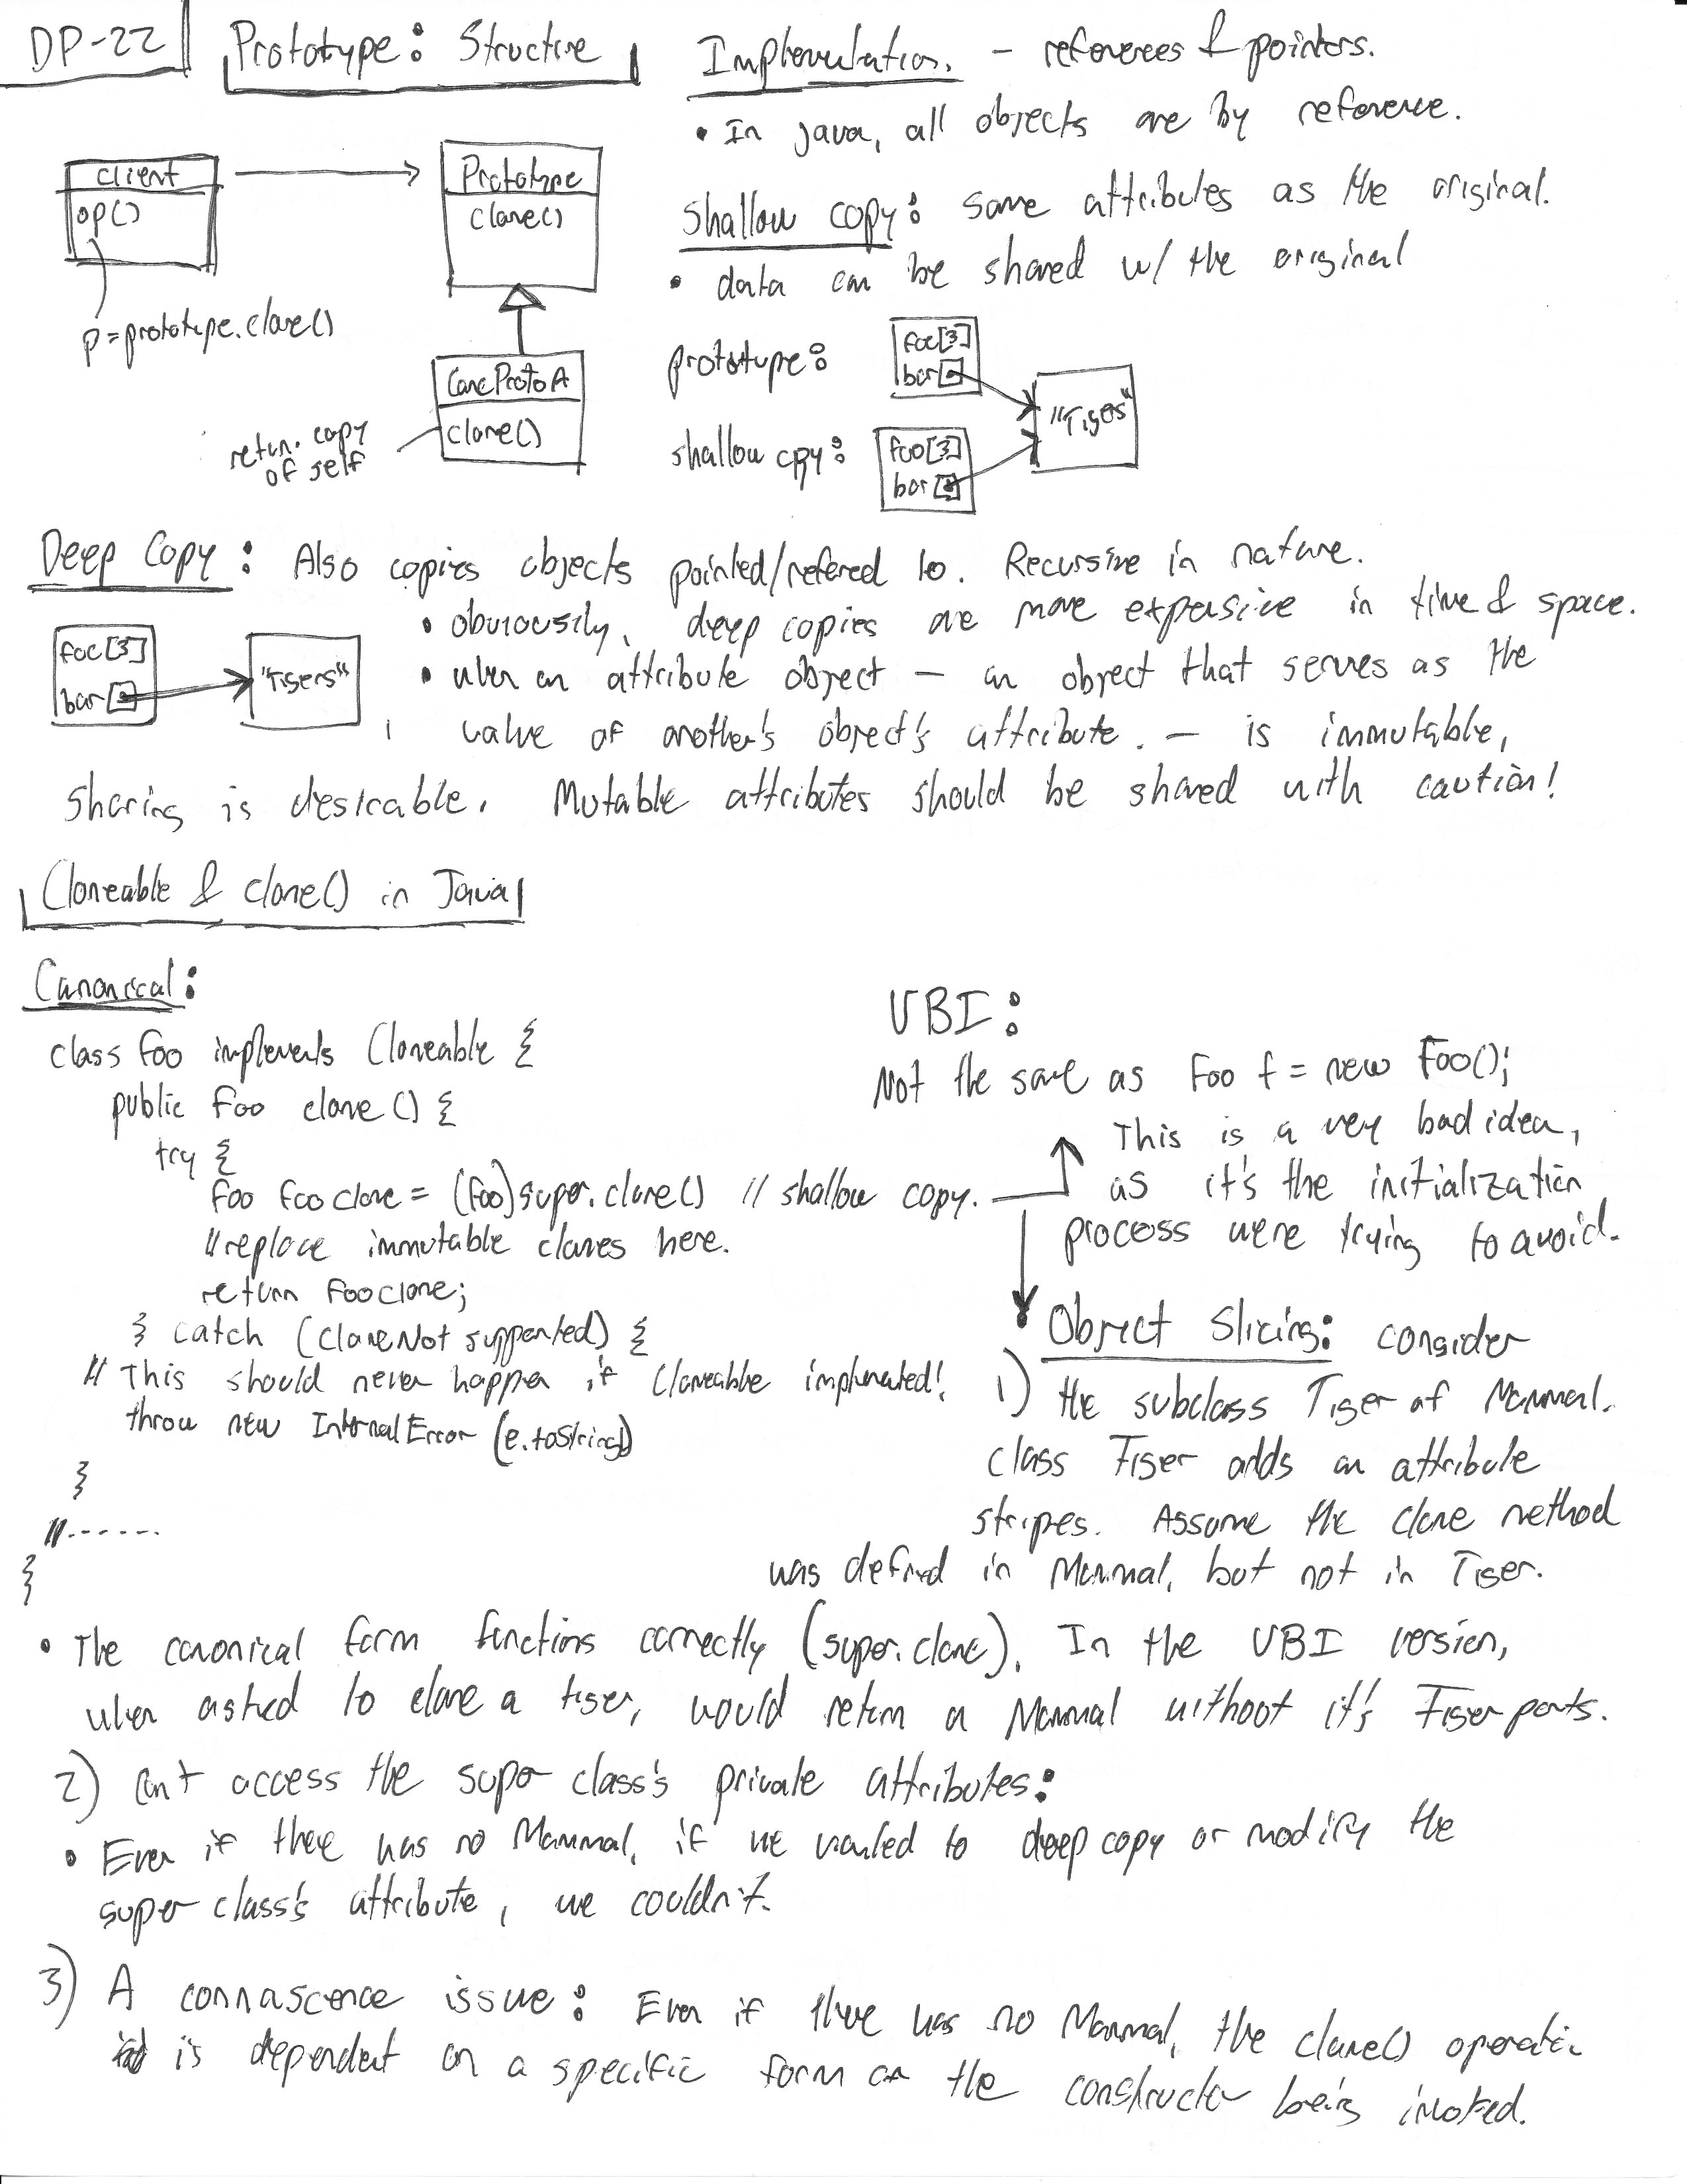 DP-22
Prototype: Structure
client
op()
p=prototype.clone()
Prototype
clone()
ConcProtoA
clone()
return copy
of self
Implementation. - references & pointers.
• In java, all objects are by reference.
Shallow copy: same attributes as the original.
• data can be shared w/ the original
prototype:
foo[3]
bar
shallow cpy:
foo[3]
bar
"Tigers"
Deep Copy: Also copies objects pointed/refered to. Recursive in nature.
• obviously, deep copies are more expensive in time & space.
• when an attribute object - an object that serves as the
value of another's object's attribute. - is immutable,
sharing is desirable. Mutable attributes should be shared with caution!
foo[3]
bar
"Tigers"
Cloneable & clone() in Java
Canonical:
class Foo implements Cloneable {
public Foo clone() {
try {
Foo fooclone = (Foo)super.clone() // shallow copy.
// replace immutable clones here.
return Fooclone;
} catch (CloneNotSupported) {
// This should never happen if Cloneable implemented!
throw new InternalError (e.toString())
}
//------
}
VBI:
Not the same as Foo f = new Foo();
This is a very bad idea,
as it's the initialization
process were trying to avoid.
Object Slicing: consider
1) the subclass Tiger of Mammal.
class Tiger adds an attribute
stripes. Assume the clone method
was defined in Mammal, but not in Tiger.
• The canonical form functions correctly (super.clone). In the VBI version,
when asked to clone a tiger, would return a Mammal without it's Tiger parts.
2) Can't access the super class's private attributes:
• Even if there was no Mammal, if we wanted to deep copy or modify the
super class's attribute, we couldn't.
3) A connascence issue: Even if there was no Mammal, the clone() operation
is dependent on a specific form of the constructor being invoked.